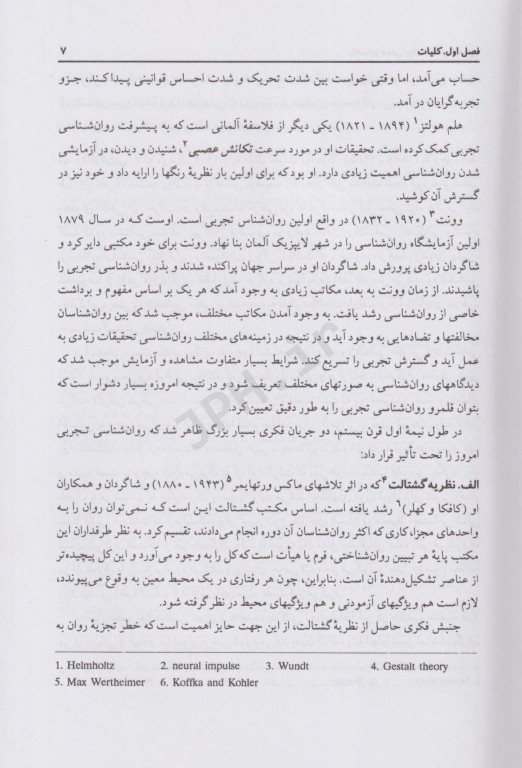 فصل اول. کلیات ۷
حساب می‌آمد، اما وقتی خواست بین شدت تحریک و شدت احساس قوانینی پیدا کند، جزو
تجربه‌گرایان در آمد.
هلم هولتز۱ (۱۸۹۴ ـ ۱۸۲۱) یکی دیگر از فلاسفهٔ آلمانی است که به پیشرفت روان‌شناسی
تجربی کمک کرده است. تحقیقات او در مورد سرعت تکانش عصبی۲، شنیدن و دیدن، در آزمایشی
شدن روان‌شناسی اهمیت زیادی دارد. او بود که برای اولین بار نظریهٔ رنگها را ارایه داد و خود نیز در
گسترش آن کوشید.
وونت۳ (۱۹۲۰ ـ ۱۸۳۲) در واقع اولین روان‌شناس تجربی است. اوست کـه در سـال ۱۸۷۹
اولین آزمایشگاه روان‌شناسی را در شهر لایپزیک آلمان بنا نهاد. وونت برای خود مکتبی دایر کرد و
شاگردان زیادی پرورش داد. شاگردان او در سراسر جهان پراکنده شدند و بذر روان‌شناسی تجربی را
پاشیدند. از زمان وونت به بعد، مکاتب زیادی به وجود آمد که هر یک بر اساس مفهوم و برداشت
خاصی از روان‌شناسی رشد یافت. به وجود آمدن مکاتب مختلف، موجب شد که بین روان‌شناسان
مخالفتها و تضادهایی به وجود آید و در نتیجه در زمینه‌های مختلف روان‌شناسی تحقیقات زیادی به
عمل آید و گسترش تجربی را تسریع کند. شرایط بسیار متفاوت مشاهده و آزمایش موجب شد که
دیدگاههای روان‌شناسی به صورتهای مختلف تعریف شود و در نتیجه امروزه بسیار دشوار است که
بتوان قلمرو روان‌شناسی تجربی را به طور دقیق تعیین کرد.
در طول نیمهٔ اول قرن بیستم، دو جریان فکری بسیار بزرگ ظاهر شد که روان‌شناسی تـجربی
امروز را تحت تأثیر قرار داد:
الف. نظریه گشتالت۴ که در اثر تلاشهای ماکس ورتهایمر۵ (۱۹۴۳ ـ ۱۸۸۰) و شاگردان و همکاران
او (کافکا و کهلر)۶ رشد یافته است. اساس مکتب گشتالت ایـن اسـت کـه نـمی‌توان روان را بـه
واحدهای مجزا، کاری که اکثر روان‌شناسان آن دوره انجام می‌دادند، تقسیم کرد. به نظر طرفداران این
مکتب پایهٔ هر تبیین روان‌شناختی، فرم یا هیأت است که کل را به وجود می‌آورد و این کل پیچیده‌تر
از عناصر تشکیل‌دهندهٔ آن است. بنابراین، چون هر رفتاری در یک محیط معین به وقوع می‌پیوندد،
لازم است هم ویژگیهای آزمودنی و هم ویژگیهای محیط در نظر گرفته شود.
جنبش فکری حاصل از نظریهٔ گشتالت، از این جهت حایز اهمیت است که خطر تجزیهٔ روان به
1. Helmholtz 2. neural impulse 3. Wundt 4. Gestalt theory
5. Max Wertheimer 6. Koffka and Kohler